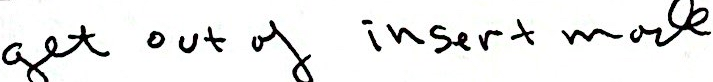 get out of insert mode